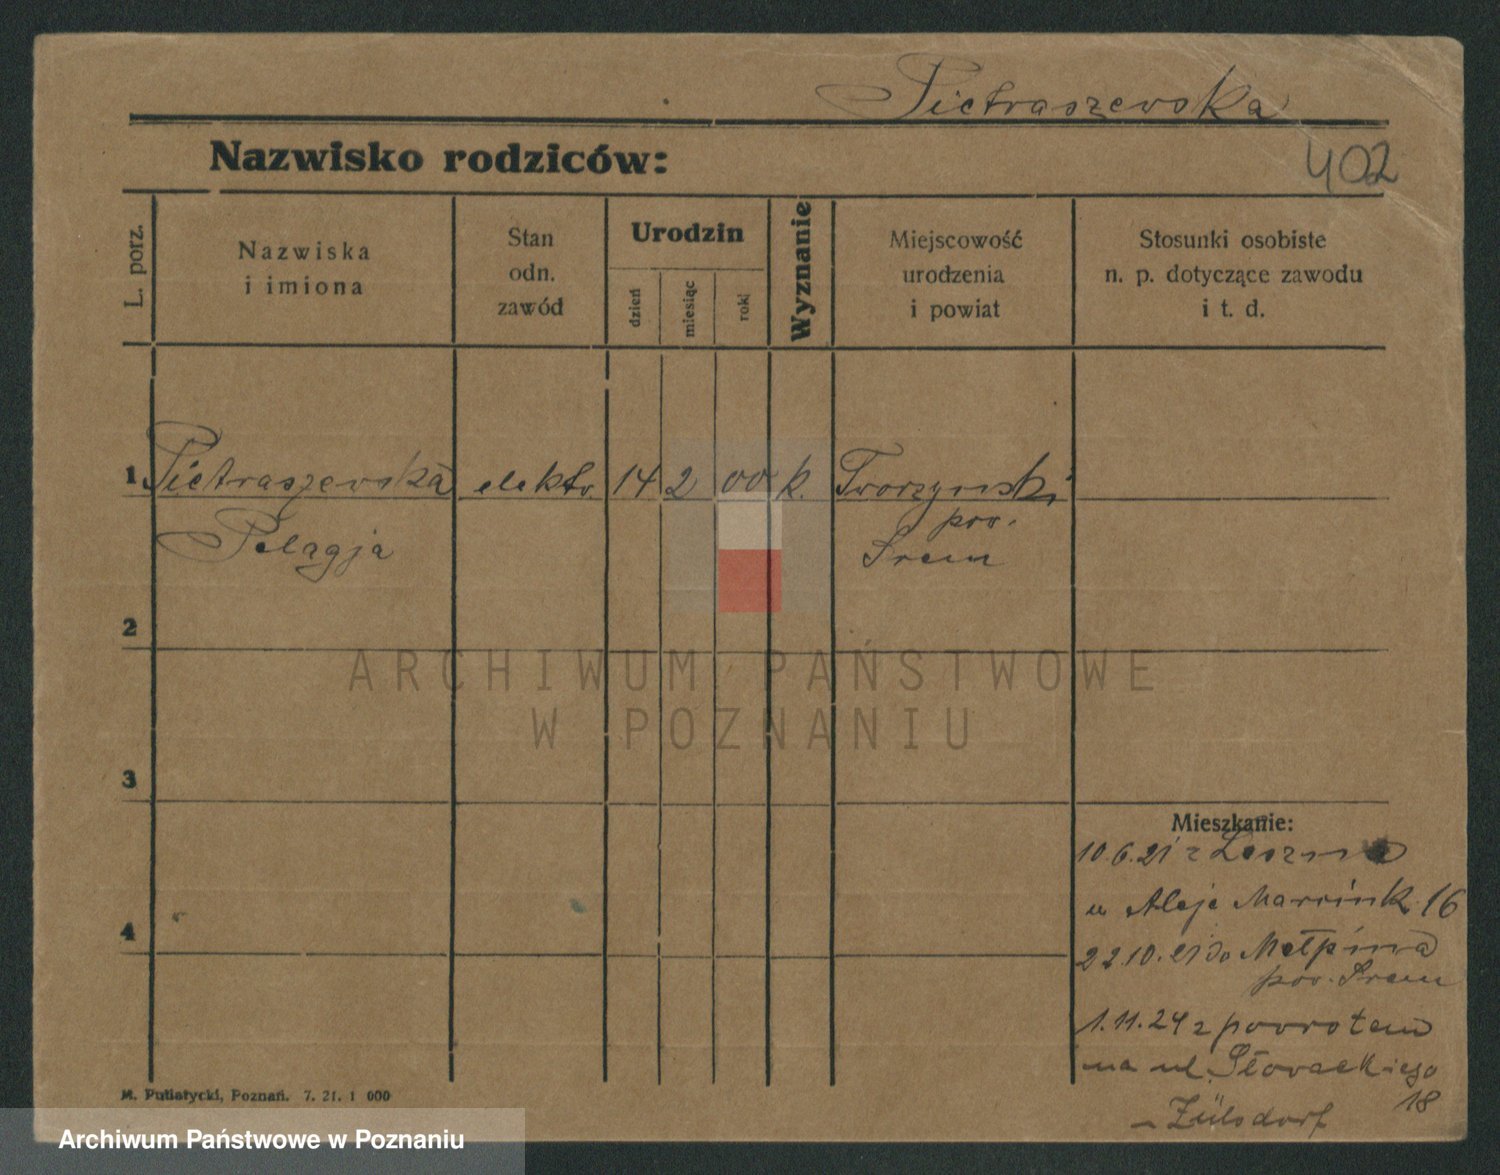 Pietraszewska
Nazwisko rodziców:
402
L. porz.
Nazwiska
i imiona
Stan
odn.
zawód
Urodzin
dzień
miesiąc
roki
Wyznanie
Miejscowość
urodzenia
i powiat
Stosunki osobiste
n. p. dotyczące zawodu
i t. d.
1 Pietraszewska elektr. 14 2 00 k. Tworzymski
pow.
Pelagja
Śrem
2
ARCHIWUM PAŃSTWOWE
W POZNANIU
3
Mieszkanie:
10.6.21 z Leszna
u Aleje Marcink. 16
4
22.10.21 do Mełpina
pow. Śrem
1.11.24 z powrotem
na ul. Słowackiego
18
Zülsdorf
M. Putiatycki, Poznań. 7. 21. 1 000
Archiwum Państwowe w Poznaniu